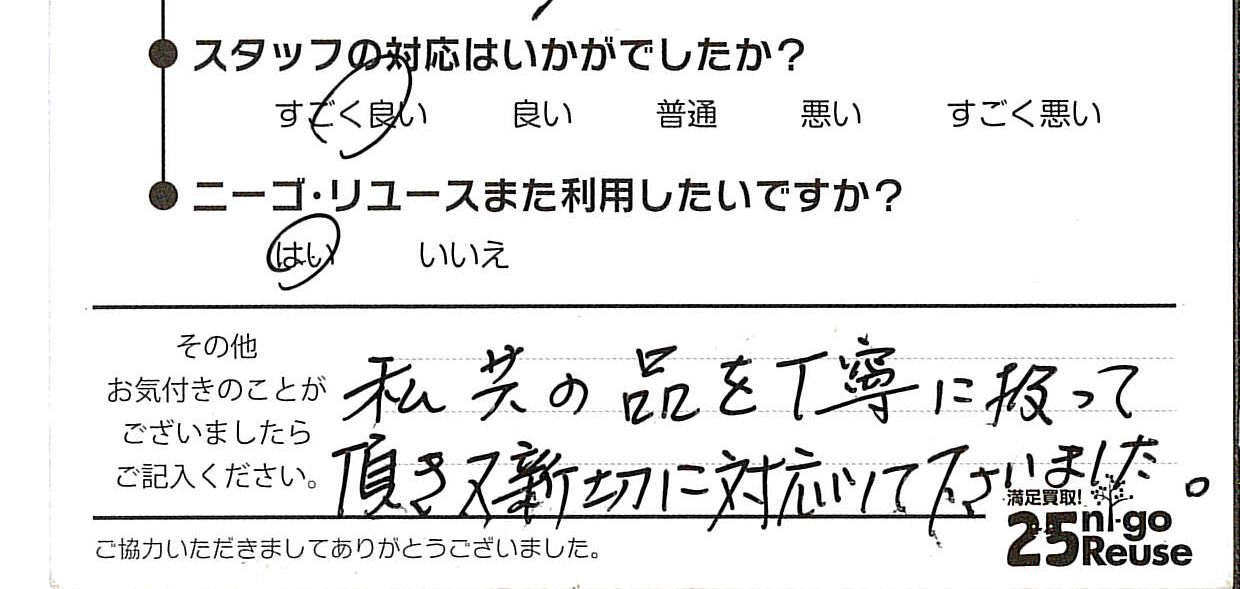 スタッフの対応はいかがでしたか?
すごく良い 良い 普通 悪い すごく悪い
ニーゴ・リユースまた利用したいですか?
はい いいえ
その他
お気付きのことが
ございましたら
ご記入ください。
私共の品を丁寧に扱って
頂き又新切に対応して下さいました。
ご協力いただきましてありがとうございました。
満足買取!
25 ni-go
Reuse